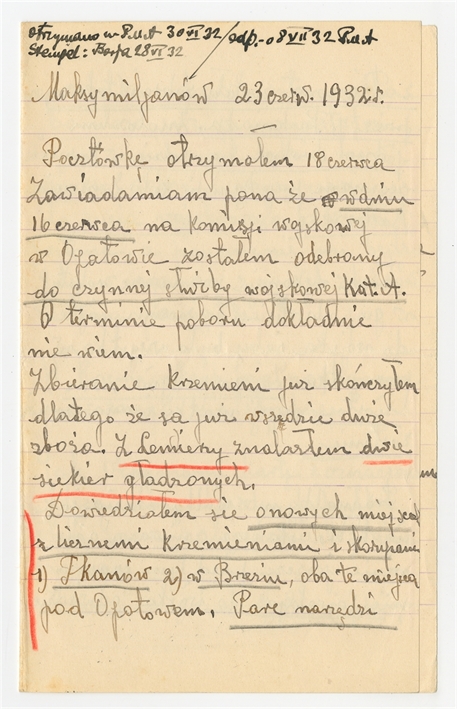 otrzymano w P.M.A 30 VI 32 / odp.-o 8 VII 32 P.M.A
Stempel: Borja 28 VI 32
Maksymiljanów 23 czerw. 1932 r.
Pocztówkę otrzymałem 18 czerwca
Zawiadamiam pana że w dniu
16 czerwca na komisji wojskowej
w Opatowie zostałem odebrany
do czynnej służby wojskowej Kat. A.
O terminie poboru dokładnie
nie wiem.
Zbieranie krzemieni już skończyłem
dlatego że są już wszędzie duże
zboża. Z Lemierzy znalazłem dwie
siekier gładzonych.
Dowiedziałem się o nowych miejsca
z licznemi krzemieniami i skorupami
1) Tkanów 2) w Brzeziu, oba te miejsca
pod Opatowem. Parę narzędzi